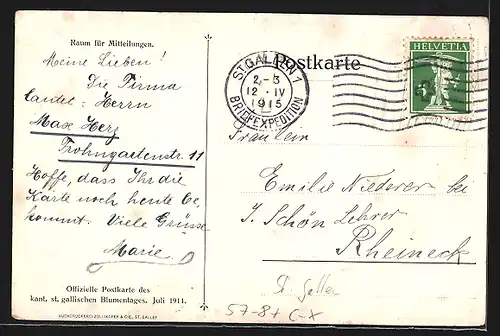 Raum für Mitteilungen.
Meine Lieben!
Die Firma
lautet: Herrn
Max Herz
Frohngartenstr. 11
Hoffe, dass Ihr die
Karte noch heute be
kommt. Viele Grüsse
Marie.
Offizielle Postkarte des
kant. st. gallischen Blumentages. Juli 1911.
BUCHDRUCKEREI ZOLLIKOFER & CIE., ST. GALLEN
Postkarte
ST. GALLEN 1
2-3
12. IV
1915
BRIEFEXPEDITION
HELVETIA
5
Fräulein
Emilie Niederer bei
J. Schön Lehrer
Rheineck
St. Gallen
57-8+ C-X